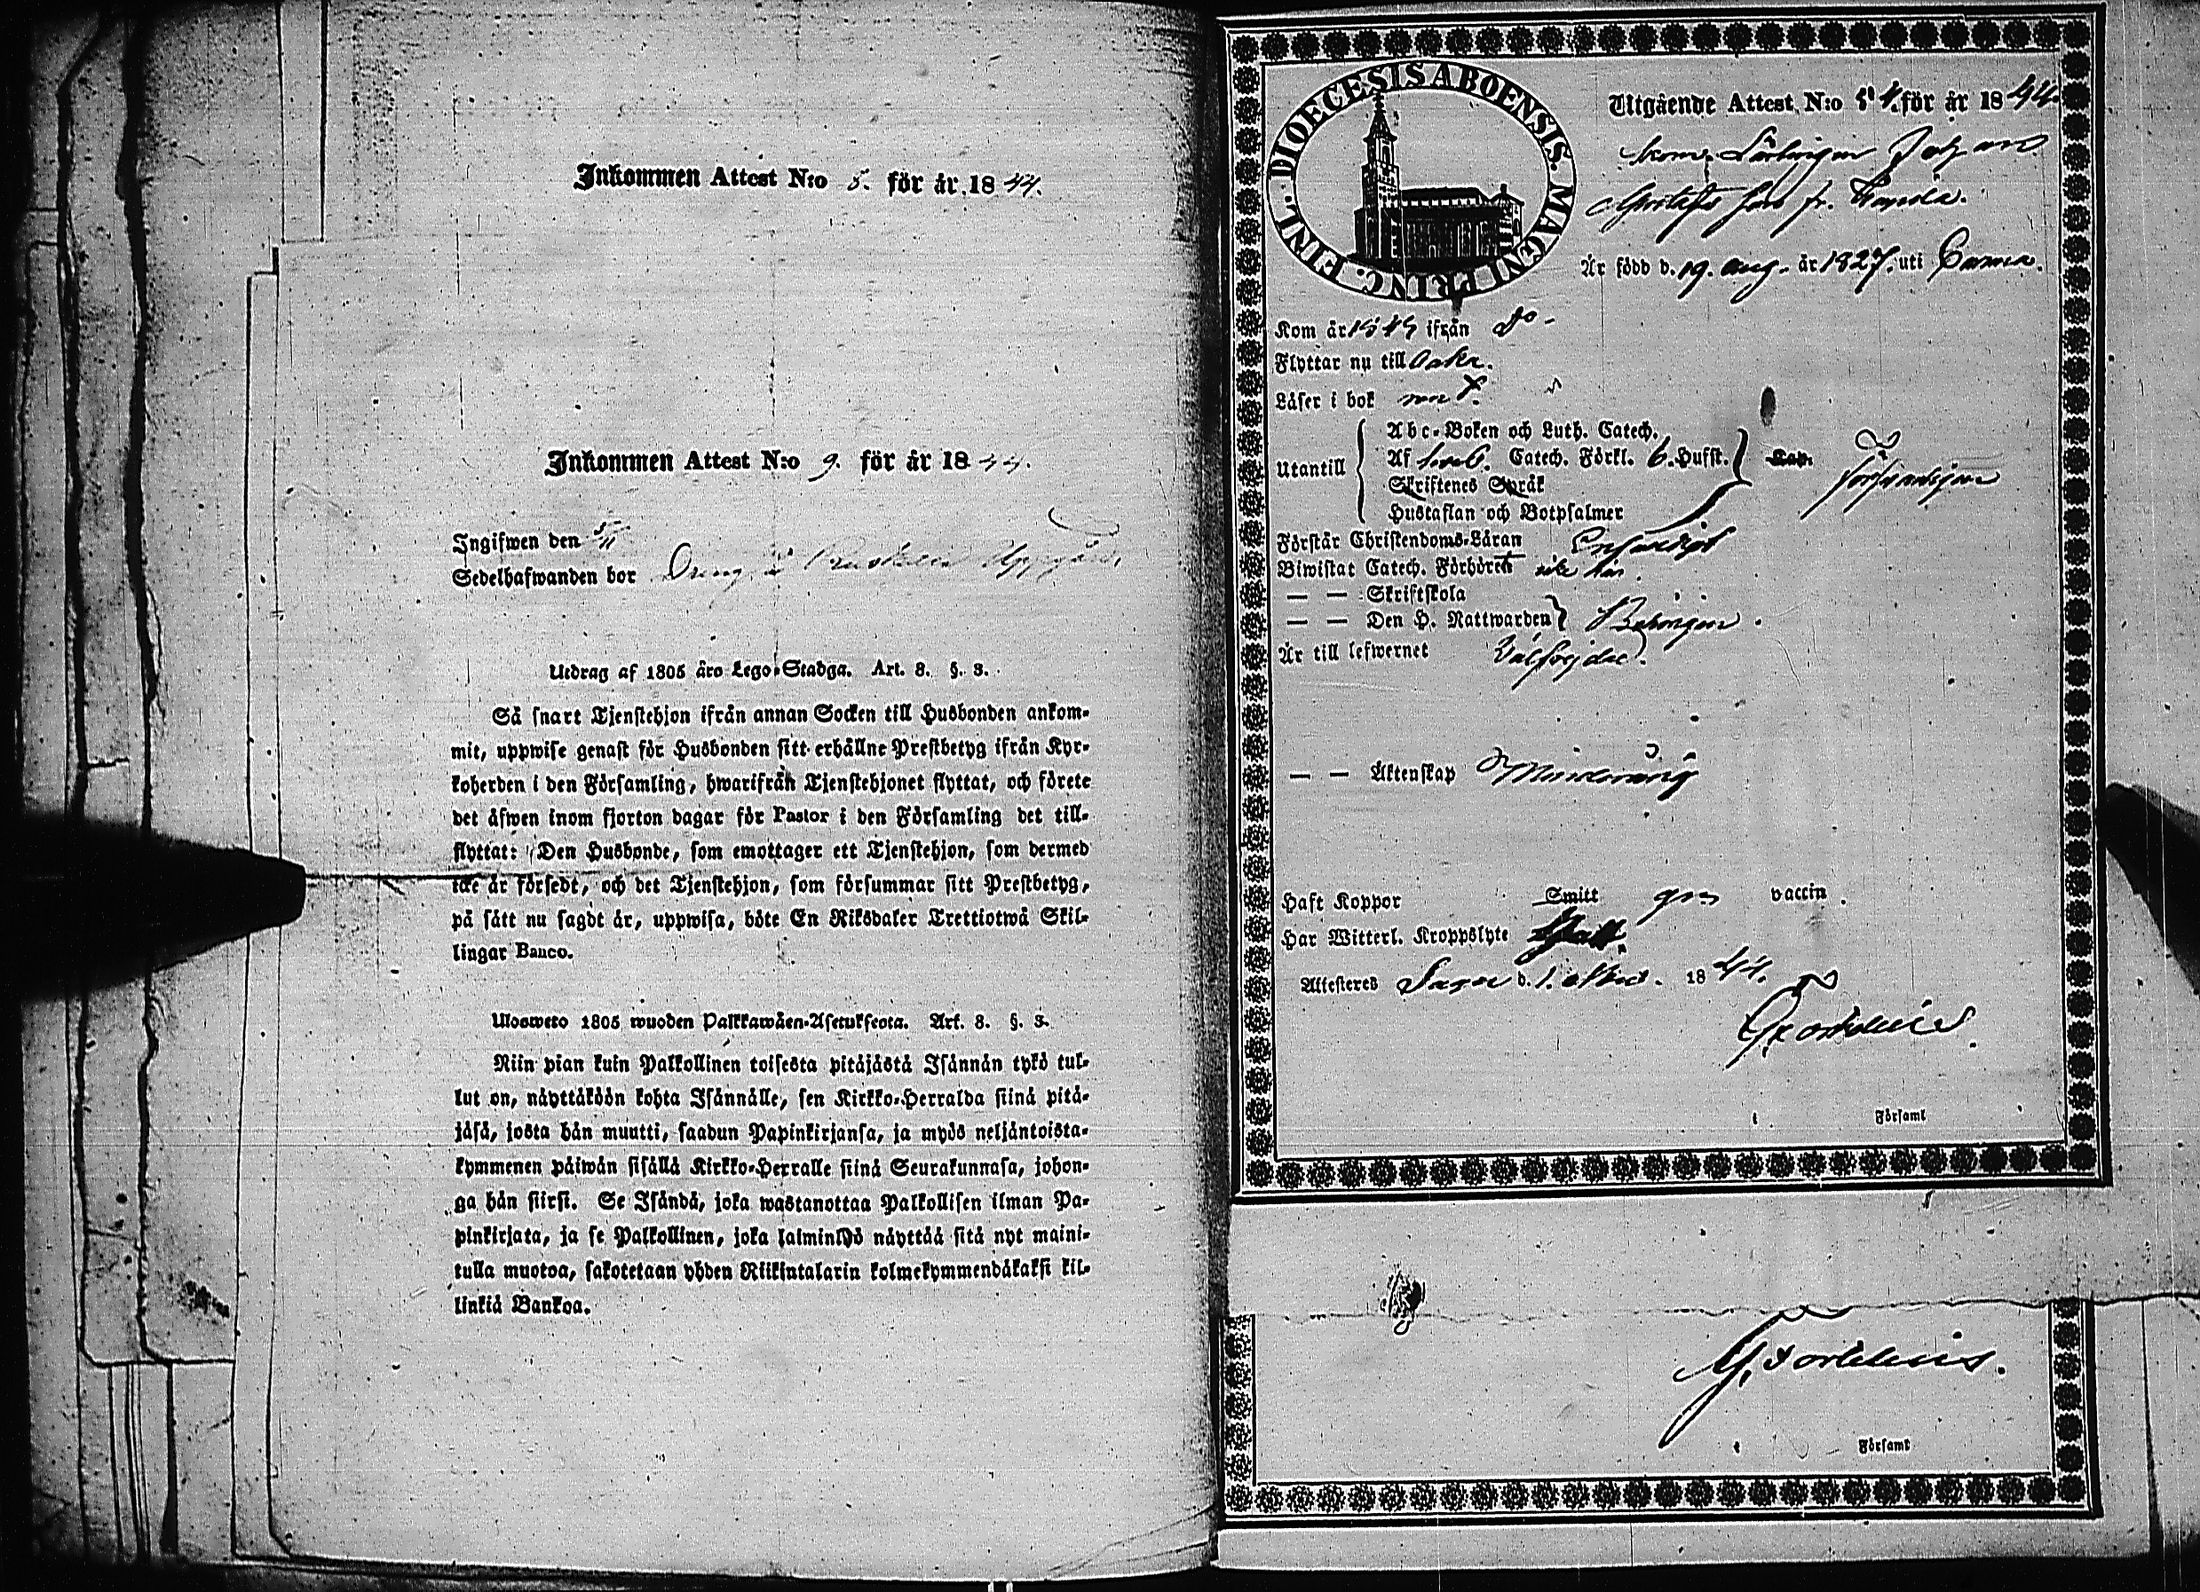 Inkommen Attest N:o 5. för år 1844.
Inkommen Attest N:o 9. för år 1844.
Ingifwen den 5/11
Sedelhafwanden bor Dreng
Utdrag af 1805 års Lego-Stadga. Art. 8. §. 3.
Så snart Tjenstehjon ifrån annan Socken till Husbonden ankom-
mit, uppwise genast för Husbonden sitt erhållne Prestbetyg ifrån Kyr-
koherden i den Församling, hwarifrån Tjenstehjonet flyttat, och förete
det äfwen inom fjorton dagar för Pastor i den Församling det till-
flyttat: Den Husbonde, som emottager ett Tjenstehjon, som dermed
icke är försedt, och det Tjenstehjon, som försummar sitt Prestbetyg,
på sätt nu sagdt är, uppwisa, böte En Riksdaler Trettiotwå Skil-
lingar Banco.
Ulosweto 1805 wuoden Palkkawäen-Asetuksesta. Art. 8. §. 3.
Niin pian kuin Palkollinen toisesta pitäjästä Isännän tykö tul-
lut on, näyttäköön kohta Isännälle, sen Kirkko-Herralda siinä pitä-
jäsä, josta hän muutti, saadun Papinkirjansa, ja myös neljäntoista-
kymmenen päiwän sisällä Kirkko-Herralle siinä Seurakunnasa, johon-
ga hän siirsi. Se Isändä, joka wastanottaa Palkollisen ilman Pa-
pinkirjata, ja se Palkollinen, joka laiminlyö näyttää sitä nyt maini-
tulla muotoa, sakotetaan yhden Riikintalarin kolmekymmendäkaksi kil-
linkiä Bankoa.
FINL. DIOECESIS ABOENSIS MAGNI PRINC.
Utgående Attest N:o 54. för år 1844.
Lärlingen Johan
Gustafs son fr.
Är född d. 19. aug. år 1827. uti
Kom år ifrån Do
Flyttar nu till
Läser i bok
Utantill
Abc-Boken och Luth. Catech.
Af Catech. Förkl. 6. Hufst.
Skriftenes Språk
Hustaflan och Botpsalmer
Kap.
Förswarligen
Förstår Christendoms-Läran Enfaldigt
Biwistat Catech. Förhören icke här
— — Skriftskola
— — Den H. Nattwarden Behörigen.
Är till lefwernet Wälfrejdad.
— — Äktenskap Minderårig
Haft Koppor Smitt gm vaccin.
Har Witterl. Kroppslyte
Attesteras d. 1. Nov. 1844.
G. Fortelius
Församl
G. Fortelius.
Församl